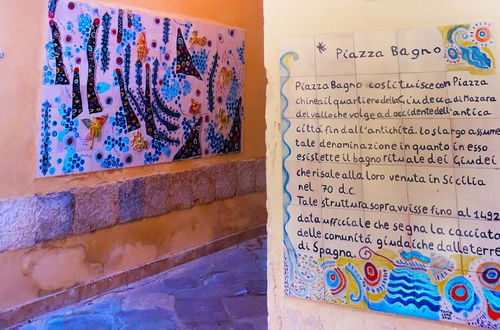 * Piazza Bagno
Piazza Bagno costituisce con Piazza
chinea il quartiere della Giudecca di Mazara
del vallo che volge ad occidente dell'antica
città fin dall'antichità. Lo slargo assume
tale denominazione in quanto in esso
esistette il bagno rituale dei Giudei
che risale alla loro venuta in Sicilia
nel 70 d.c.
Tale struttura sopravvisse fino al 1492
data ufficiale che segna la cacciata
delle comunità giudaiche dalle terre
di Spagna.